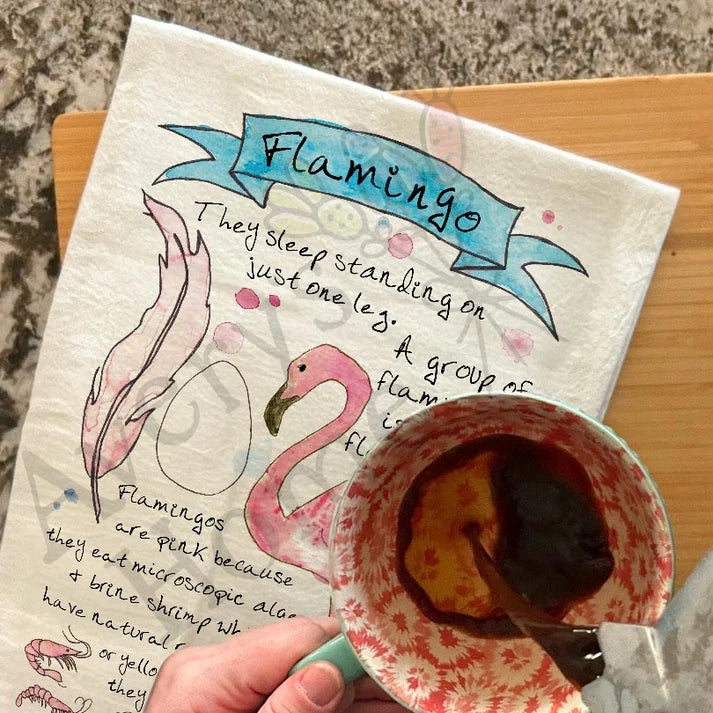 Flamingo
They sleep standing on
just one leg.
A group of
Flamingos
are pink because
they eat microscopic
& brine shrimp
have natural
or
they
Avery's